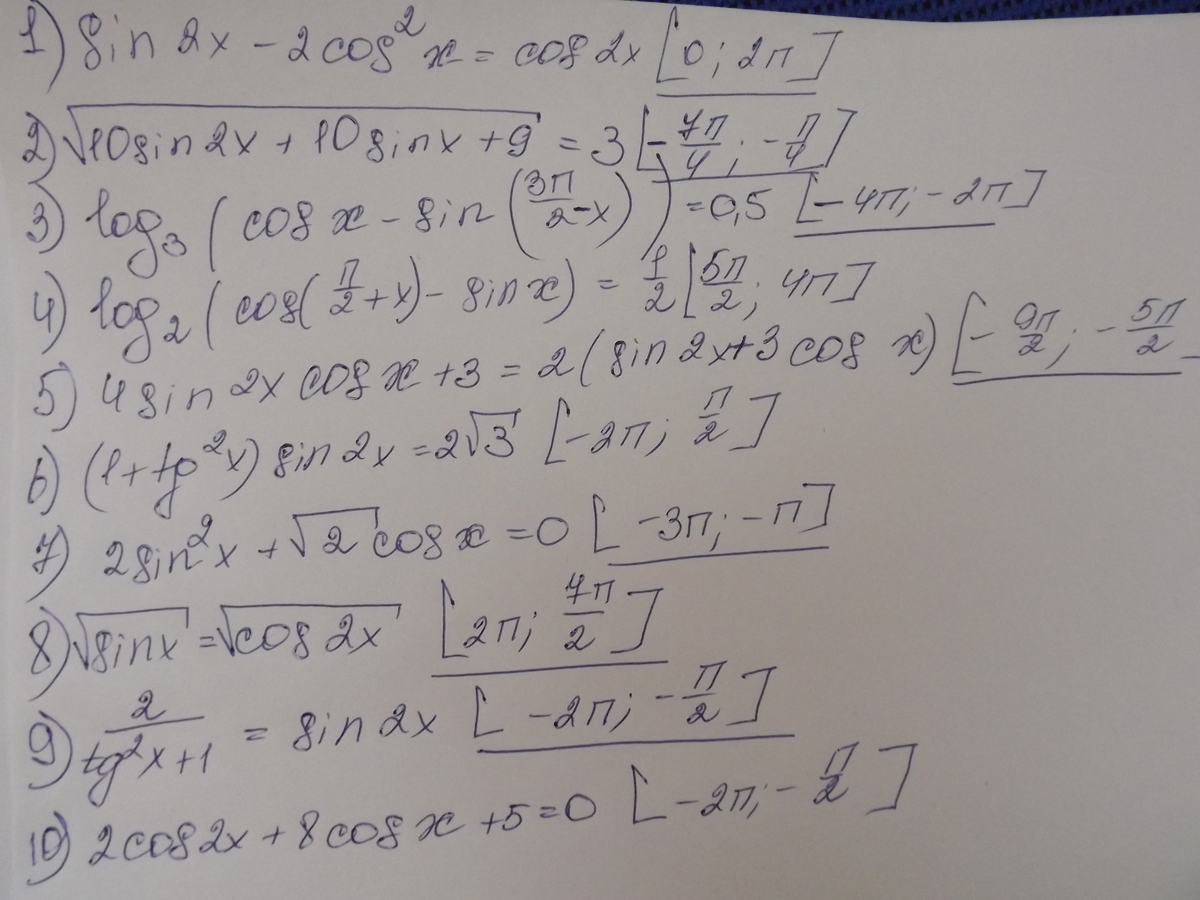 1) sin 2x - 2cos²x = cos 2x [0; 2π]
2) √(10sin2x + 10sinx + 9) = 3 [-7π/4; -π/4]
3) log₃(cos x - sin(3π/2 - x)) = 0,5 [-4π; -2π]
4) log₂(cos(π/2 + x) - sin x) = 1/2 [5π/2; 4π]
5) 4sin 2x cos x + 3 = 2(sin 2x + 3 cos x) [-9π/2; -5π/2
6) (1 + tg²x) sin 2x = 2√3 [-2π; π/2]
7) 2sin²x + √2 cos x = 0 [-3π; -π]
8) √sinx = √cos 2x [2π; 7π/2]
9) 2/(tg²x + 1) = sin 2x [-2π; -π/2]
10) 2cos2x + 8cos x + 5 = 0 [-2π; -π/2]